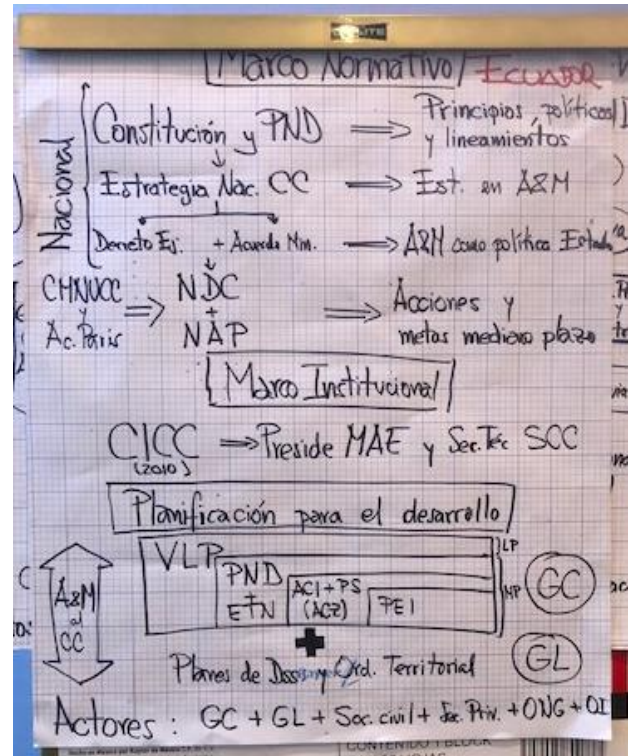 Marco Normativo / ECUADOR
Nacional
Constitución y PND ⇒ Principios, políticas
y lineamientos
Estrategia Nac. CC ⇒ Est. en A&M
Decreto Ej. + Acuerdo Min. ⇒ A&M como política Estado
CMNUCC
y
Ac. París
⇒ NDC
+
NAP
⇒ Acciones y
metas mediano plazo
Marco Institucional
CICC ⇒ Preside MAE y Sec. Téc SCC
(2010)
Planificación para el desarrollo
A&M
al
CC
VLP
PND
+
ETN
ACI + PS
(AC2)
PEI
LP
MP
GC
GL
+
Planes de y Ord. Territorial
Actores : GC + GL + Soc. civil + Sec. Priv. + ONG + OI
CONTENIDO 1 BLOCK